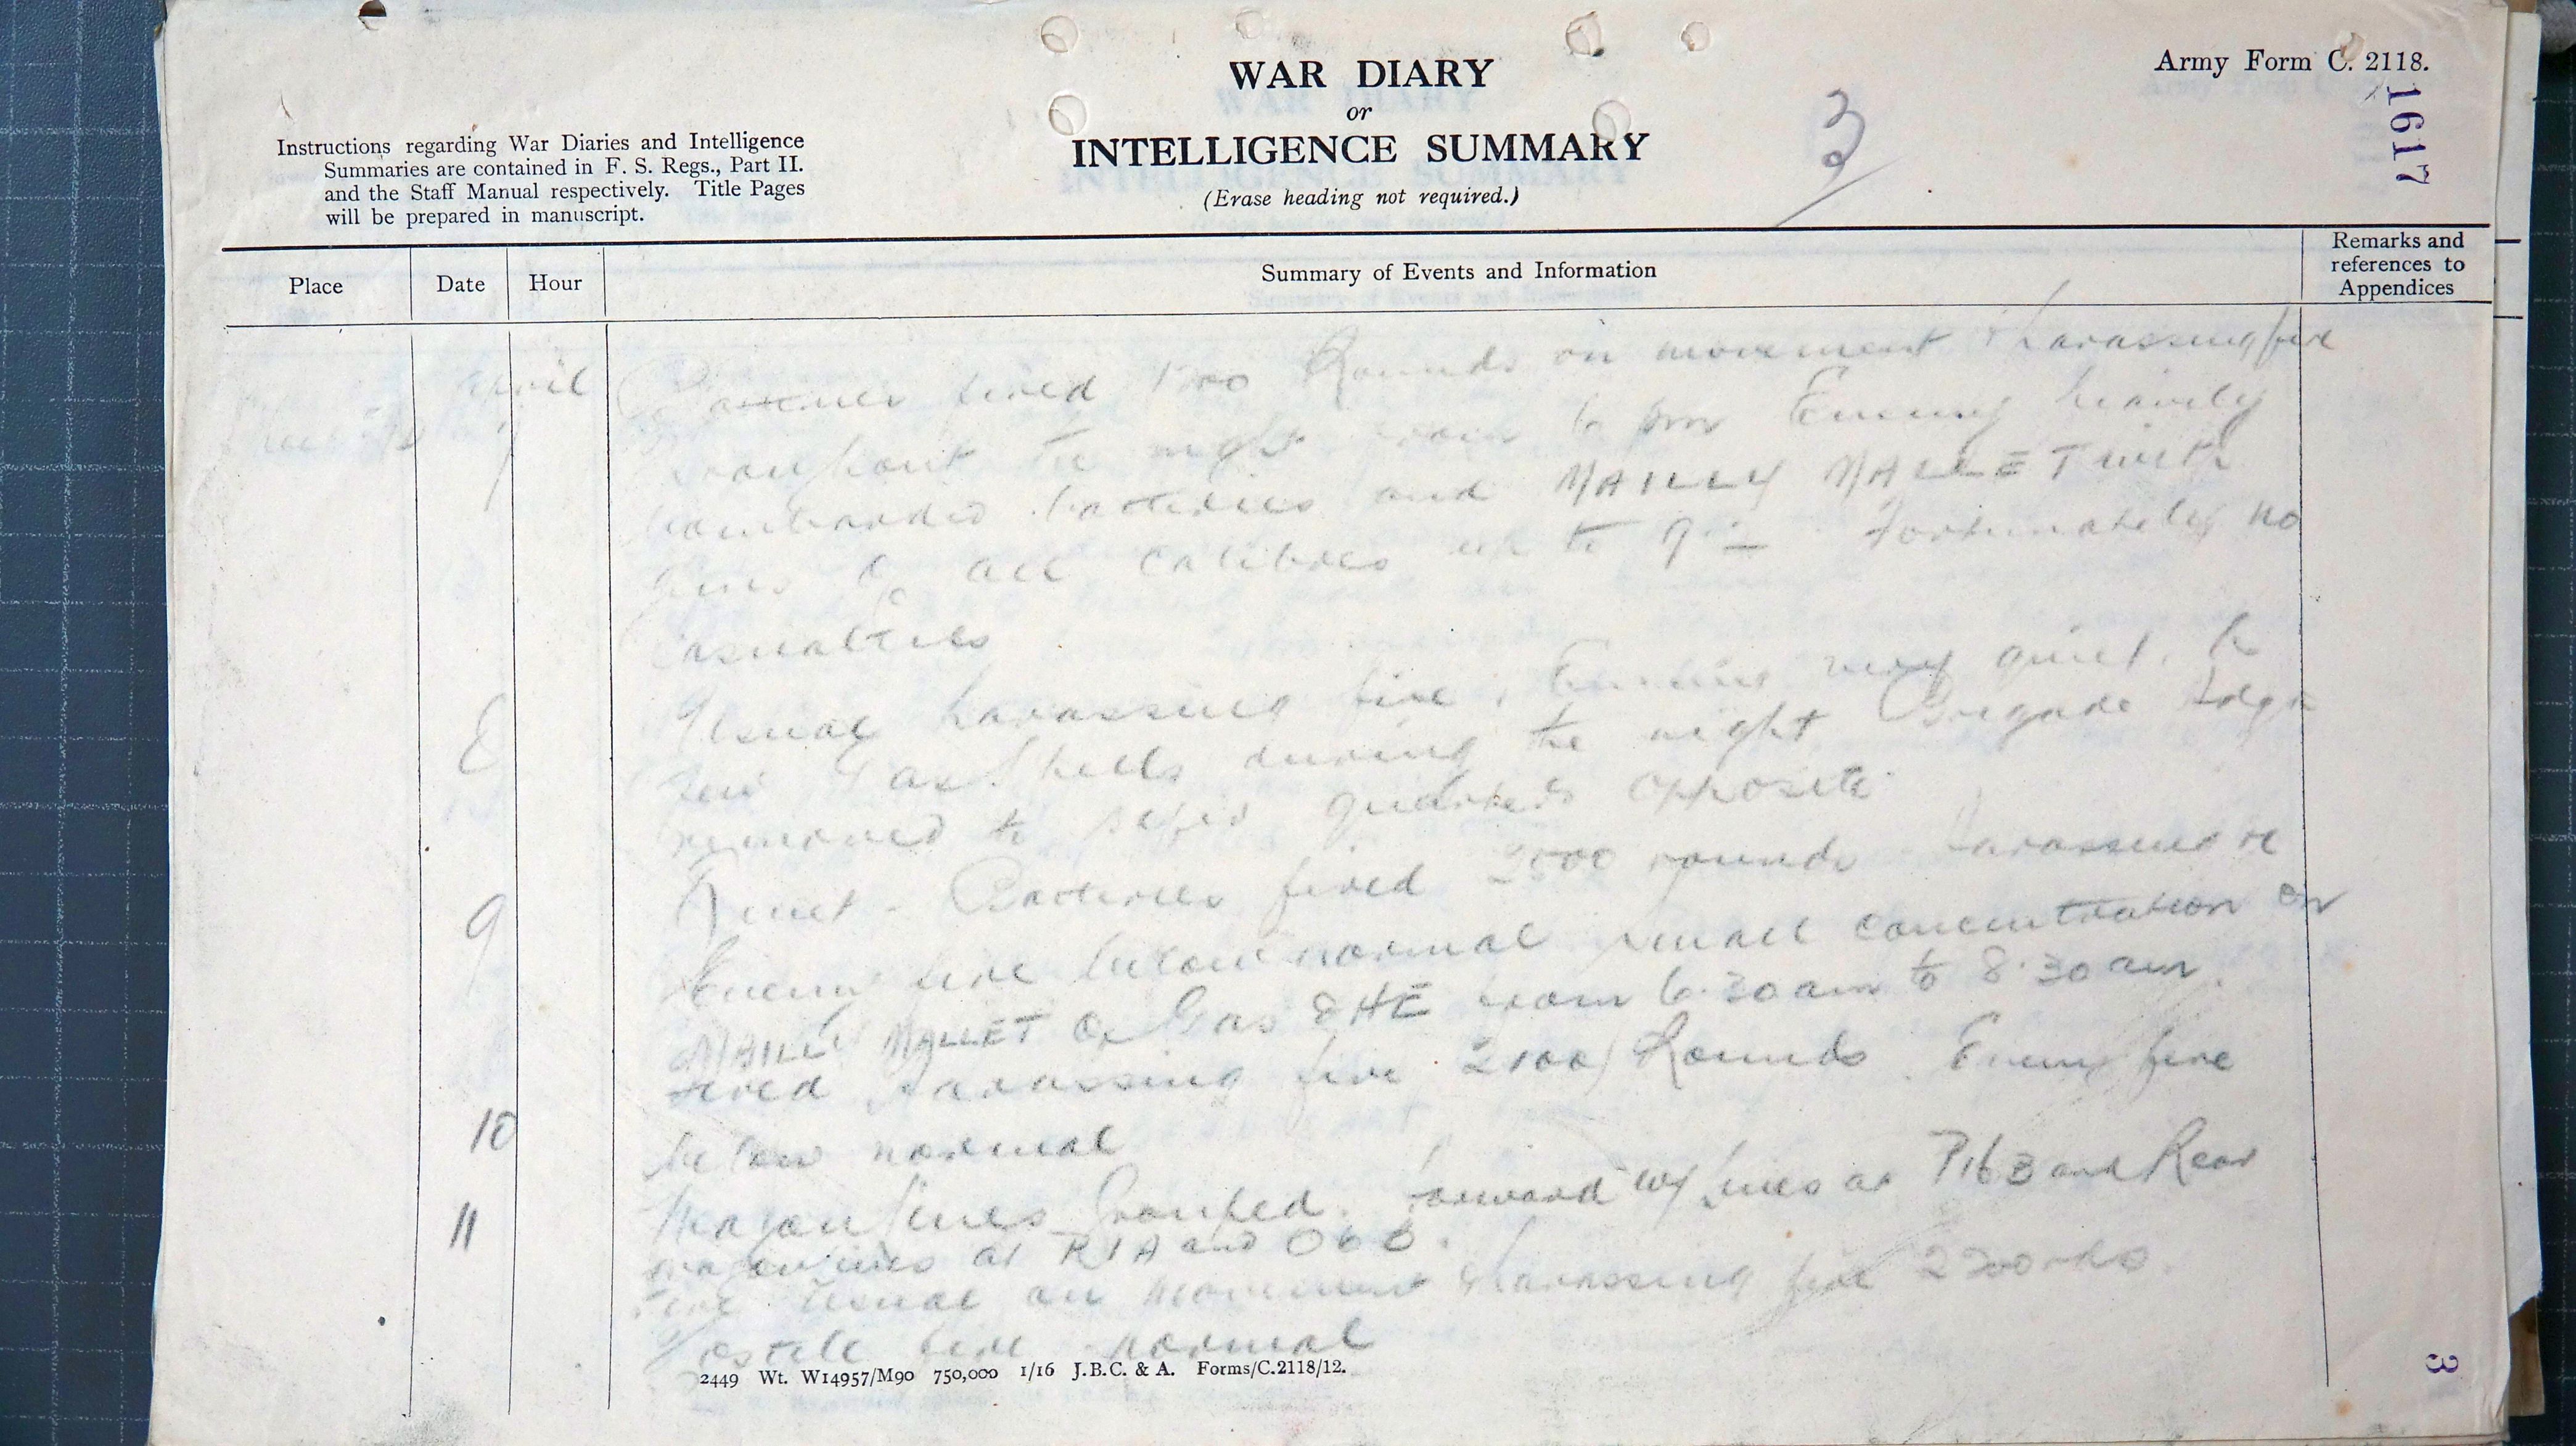 Army Form C. 2118.
WAR DIARY
or
INTELLIGENCE SUMMARY
(Erase heading not required.)
Instructions regarding War Diaries and Intelligence
Summaries are contained in F. S. Regs., Part II.
and the Staff Manual respectively. Title Pages
will be prepared in manuscript.
3
1617
Place
Date
Hour
Summary of Events and Information
Remarks and
references to
Appendices
April
7
Batteries fired Rounds on movement & harassing fire
throughout the night Enemy heavily
bombarded batteries and MAILLY MALLET with
guns of all calibres up to Fortunately no
casualties
8
Usual harassing fire. very quiet. A
few Gas Shells during the night Brigade Hdqrs
removed to safer quarters opposite
9
Quiet - Batteries fired 2500 rounds harassing
Enemy fire below normal small concentration on
MAILLY MALLET of Gas & HE from 6.30 am to 8.30 am.
10
Fired harassing fire 2100 Rounds. Enemy fire
below normal
11
Wagon lines Grouped. Forward W/Lines at P16B and Rear
wagon lines at and O6B.
Fire usual on movement & harassing fire 2200 rds.
Hostile fire normal
2449 Wt. W14957/M90 750,000 1/16 J.B.C. & A. Forms/C.2118/12.
3